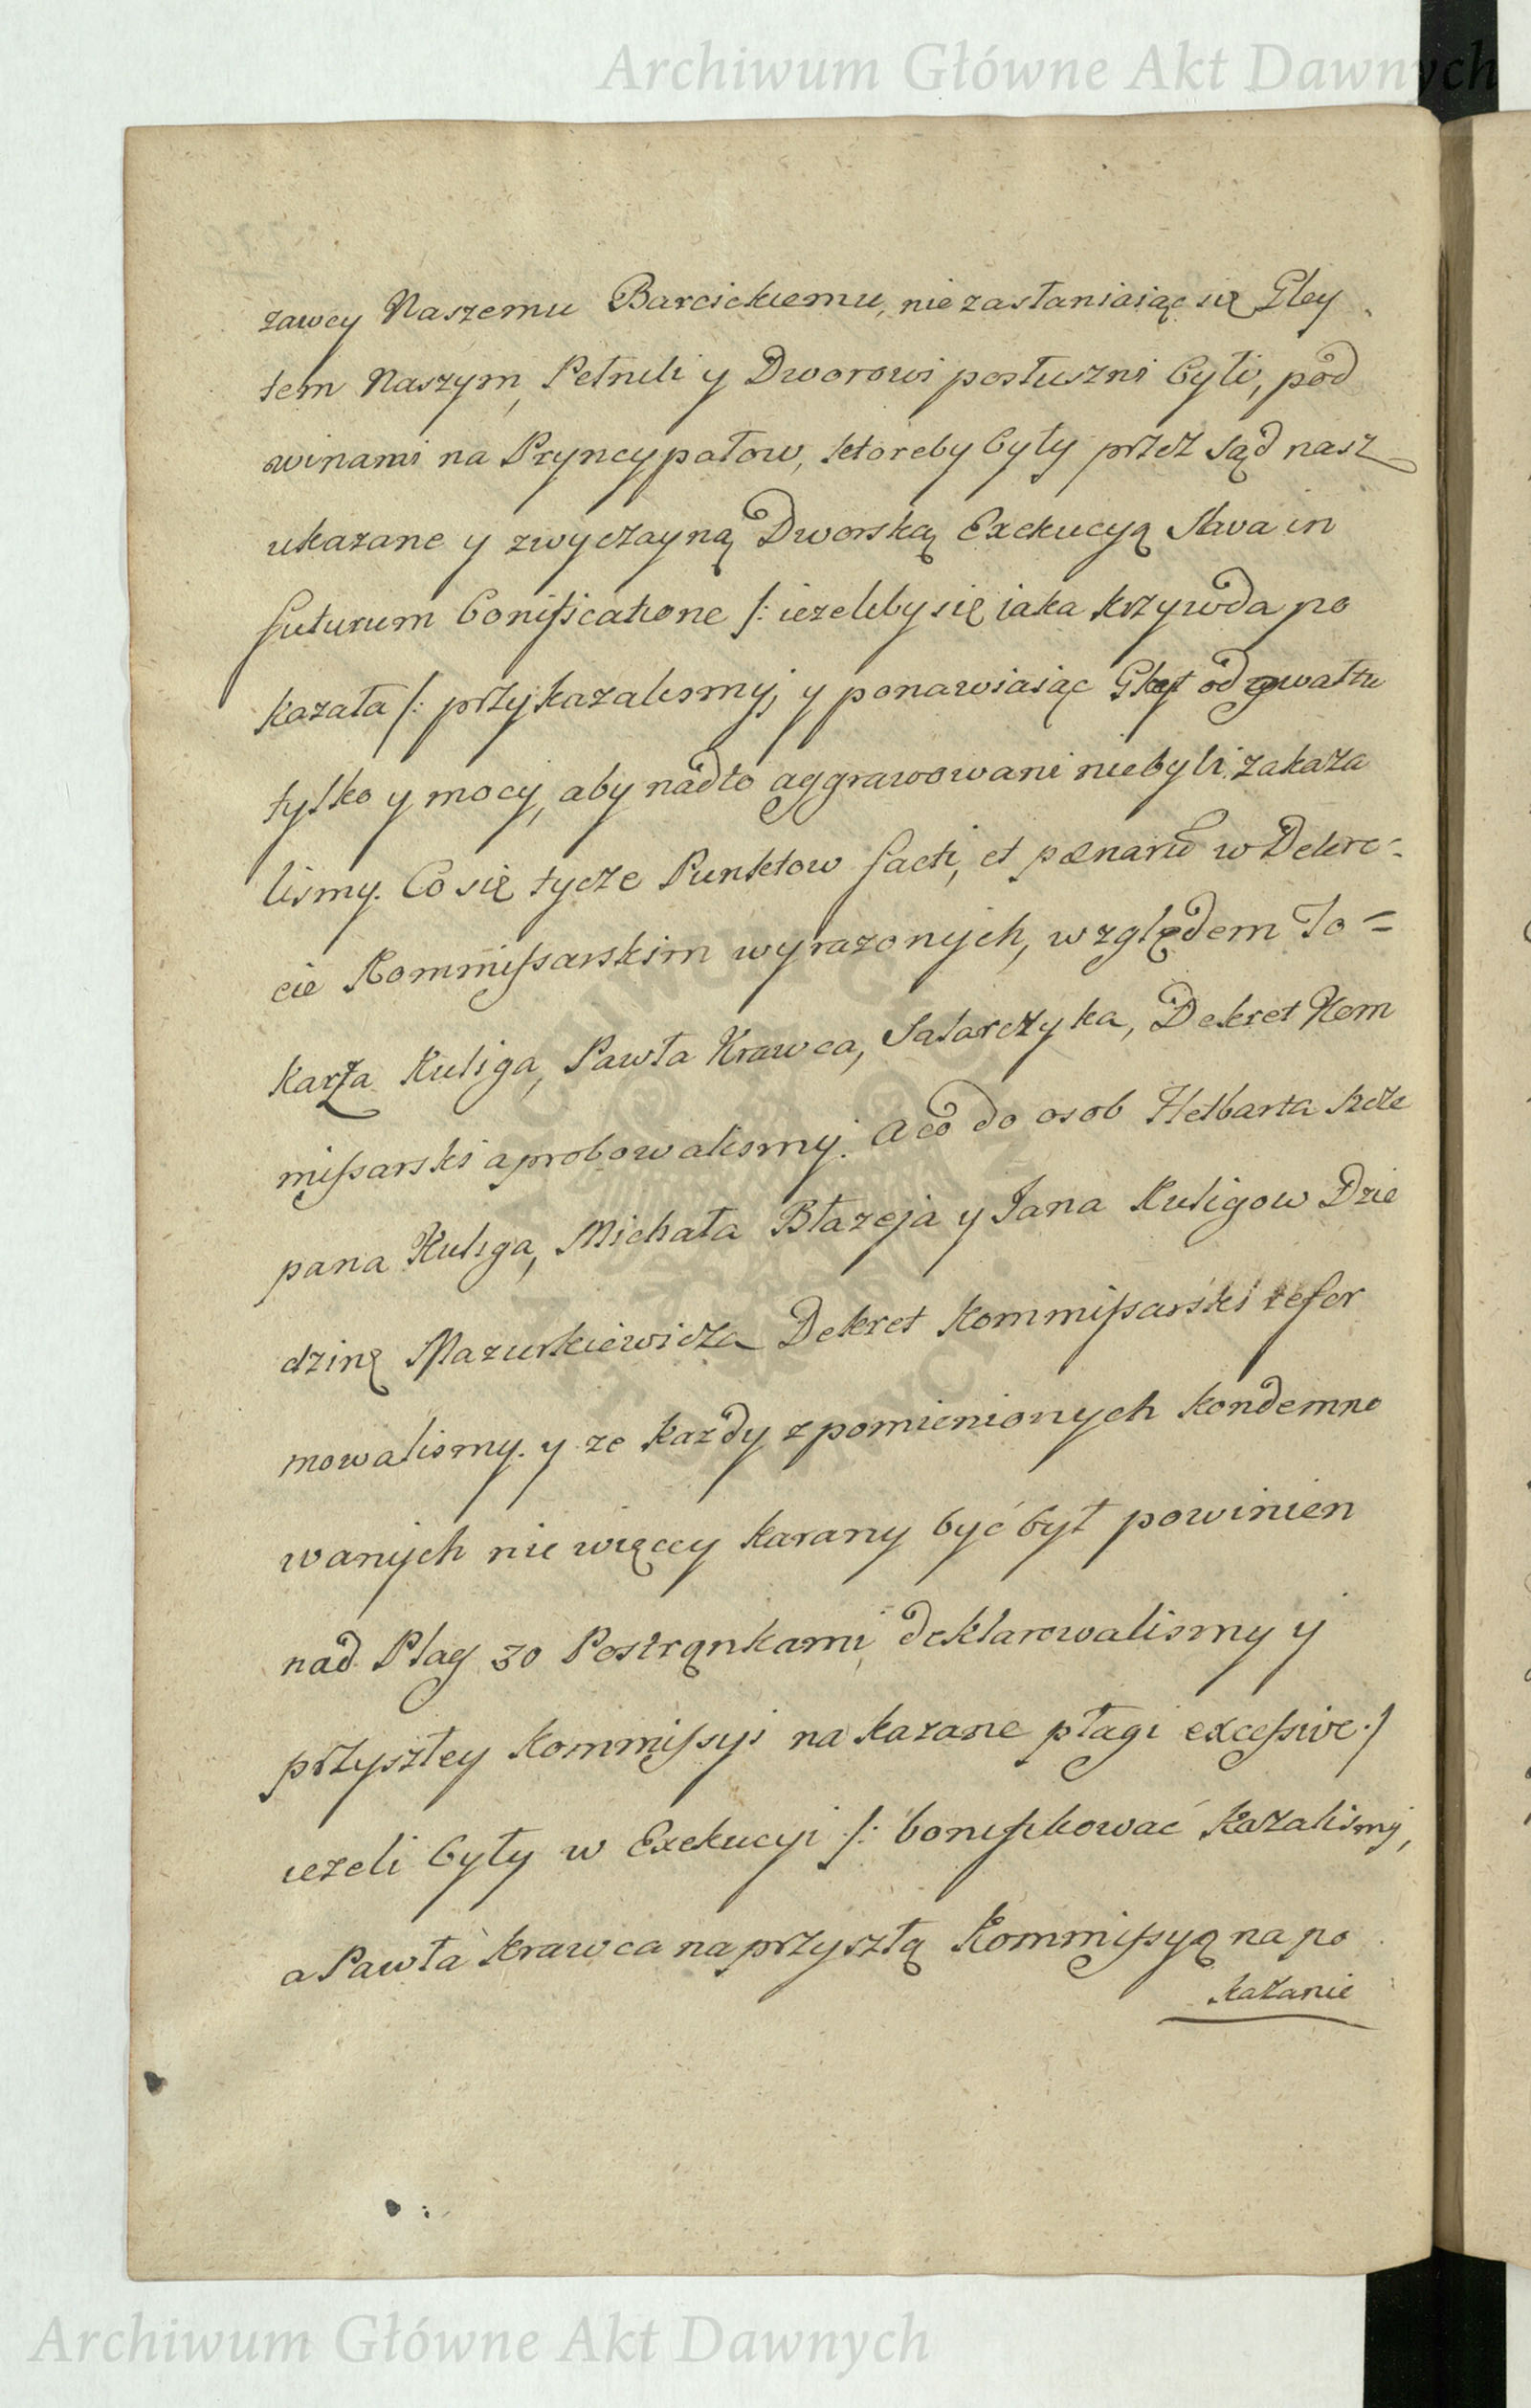 Archiwum Główne Akt Dawnych
zawcy Naszemu Barcickiemu, nie zasłaniaiąc się Gley
tem Naszym, Pełnili y Dworowi posłuszni byli, pod
winami na Pryncypałow, ktoreby były przez Sąd nasz
ukazane y zwyczayną Dworską Exekucyą Salva in
futurum bonificatione /: iezeliby się iaka krzywda po
kazała /: przykazalismy, y ponawiaiąc Gleyt od gwałtu
tylko y mocy, aby nadto aggrawowani niebyli zakaza
lismy. Co się tycze Punktow facti, et pænarũ w Dekre=
cie Kommissarskim wyrazonych, względem To=
karza Kuliga, Pawła Krawca, Satarczyka, Dekret Kom
missarski aprobowalismy. A co do osob Helbarta Szcze
pana Kuliga, Michała Błazeja y Jana Kuligow Dzie
dzinę Mazurkiewicza Dekret Kommissarski refor
mowalismy. y ze kazdy z pomienionych kondemno
wanych nie więcey karany być był powinien
nad Plag 30 Postrąnkami deklarowalismy y
przyszłey Kommissyi nakazane plagi excessive ./
iezeli były w Exekucyi /: bonifikować kazalismy,
a Pawła Krawca na przyszłą Kommissyą na po
kazanie
Archiwum Główne Akt Dawnych